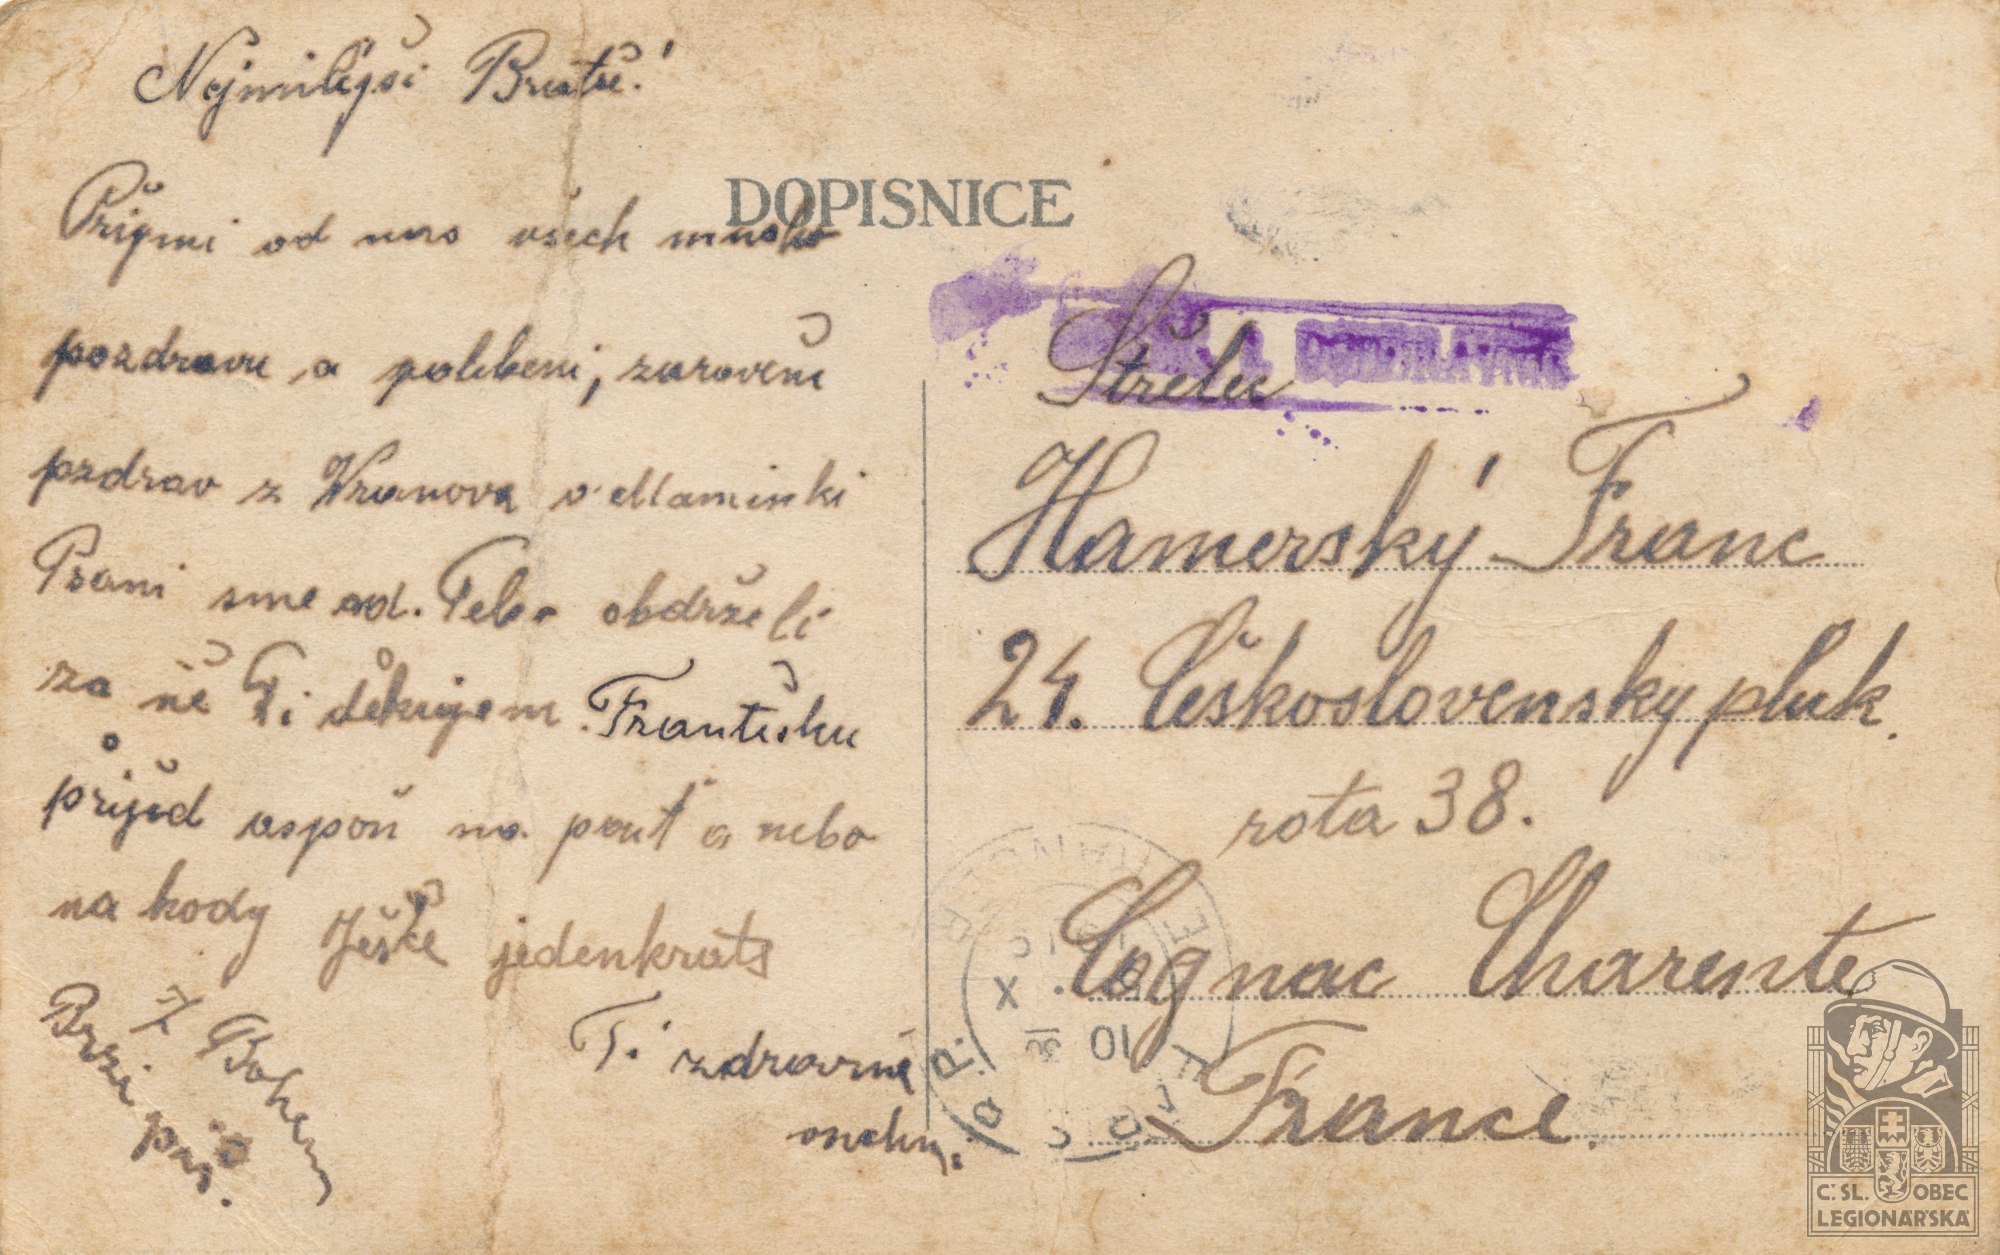 Nejmilejši Bratře!
Přijmi od nas všech mnoho
pozdravu a polibeni, zaroveň
pozdrav z Vranova o Maminki
Psani sme od. Tebe obdrželi
za ně Ti děkujem. Františku
přijed aspoň na pouť a nebo
na hody Ješče jedenkrats
Ti zdravmé
Z Bohem
Brzi piš.
DOPISNICE
Střelec
Hamerský Franc
21. Československy pluk.
rota 38.
Cognac Charente
France.
Č. SL. OBEC
LEGIONÁŘSKÁ